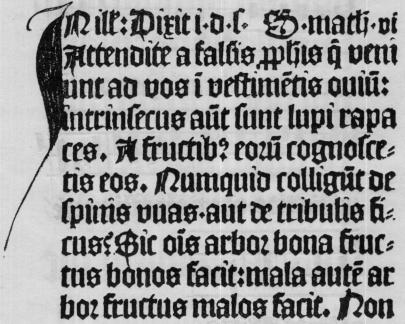 IN ill': Dixit i·d·ſ· S·math·vi
Attendite a falſis ꝓphis q̄ veni
unt ad vos ī veſtimētis ouiū:
intrinſecus aūt ſunt lupi rapa
ces. A fructibꝰ eorū cognoſce⸗
tis eos. Numquid colligūt de
ſpinis vuas·aut de tribulis fi⸗
cus? Sic oīs arbor bona fruc⸗
tus bonos facit:mala autē ar
bor fructus malos facit. Non